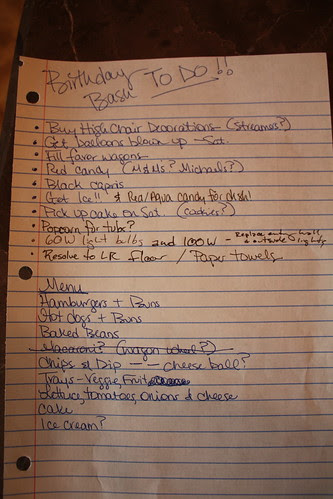 Birthday
Bash TO DO!!
• Buy High Chair Decorations (streamers?)
• Get balloons blown up - Sat.
• Fill favor wagons
• Red candy (M&Ms? Michaels?)
• Black capris
• Get Ice!! & Red/Aqua candy for dish!
• Pick up cake on Sat. (cookies?)
• Popcorn for tubs?
• 60W light bulbs and 100W - Replace hall & outside lights
• Resolve to LR floor / Paper towels
Menu
Hamburgers + Buns
Hot dogs + Buns
Baked Beans
Macaroni? (wagon wheel?)
Chips & Dip -- cheese ball?
Trays - Veggie, Fruit,
Lettuce, tomatoes, onions & cheese
Cake
Ice cream?